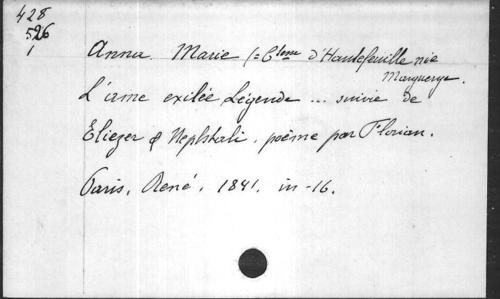 428
526
1
Anna Marie (= Ctesse d'Hautefeuille née
Marguerye.
L'ame exilée Légende ... suivie de
Éliezer & Nephtali, poème par Florian.
Paris, René, 1841. in-16.